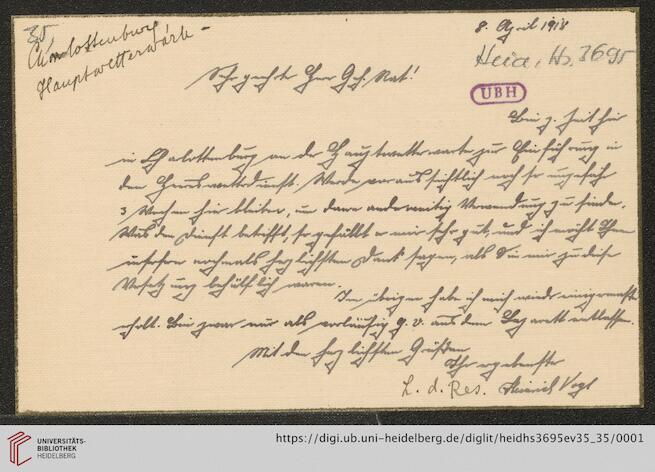 35,
Charlottenburg
Hauptwetterwarte -
8. April 1918
Heid. Hs. 3695
UBH
Sehr geehrter Herr Geh. Rat!
Bin z. Zeit hier
in Charlottenburg an der Hauptwetterwarte zur Einführung in
den Heereswetterdienst. Werde voraussichtlich noch so ungefähr
3 Wochen hier bleiben, um dann anderweitig Verwendung zu finden.
Was den Dienst betrifft, so gefällt er mir sehr gut, und ich möchte Ihnen
insofern nochmals herzlichsten Dank sagen, als Sie mir zu dieser
Versetzung behülflich waren.
Im übrigen habe ich mich wieder einigermaßen
erholt. Bin zwar nur als vorläufig g. v. aus dem Lazarett entlassen.
Mit den herzlichsten Grüßen
Ihr ergebenster
L. d. Res. Heinrich Vogt
UNIVERSITÄTS-
BIBLIOTHEK
HEIDELBERG
https://digi.ub.uni-heidelberg.de/diglit/heidhs3695ev35_35/0001